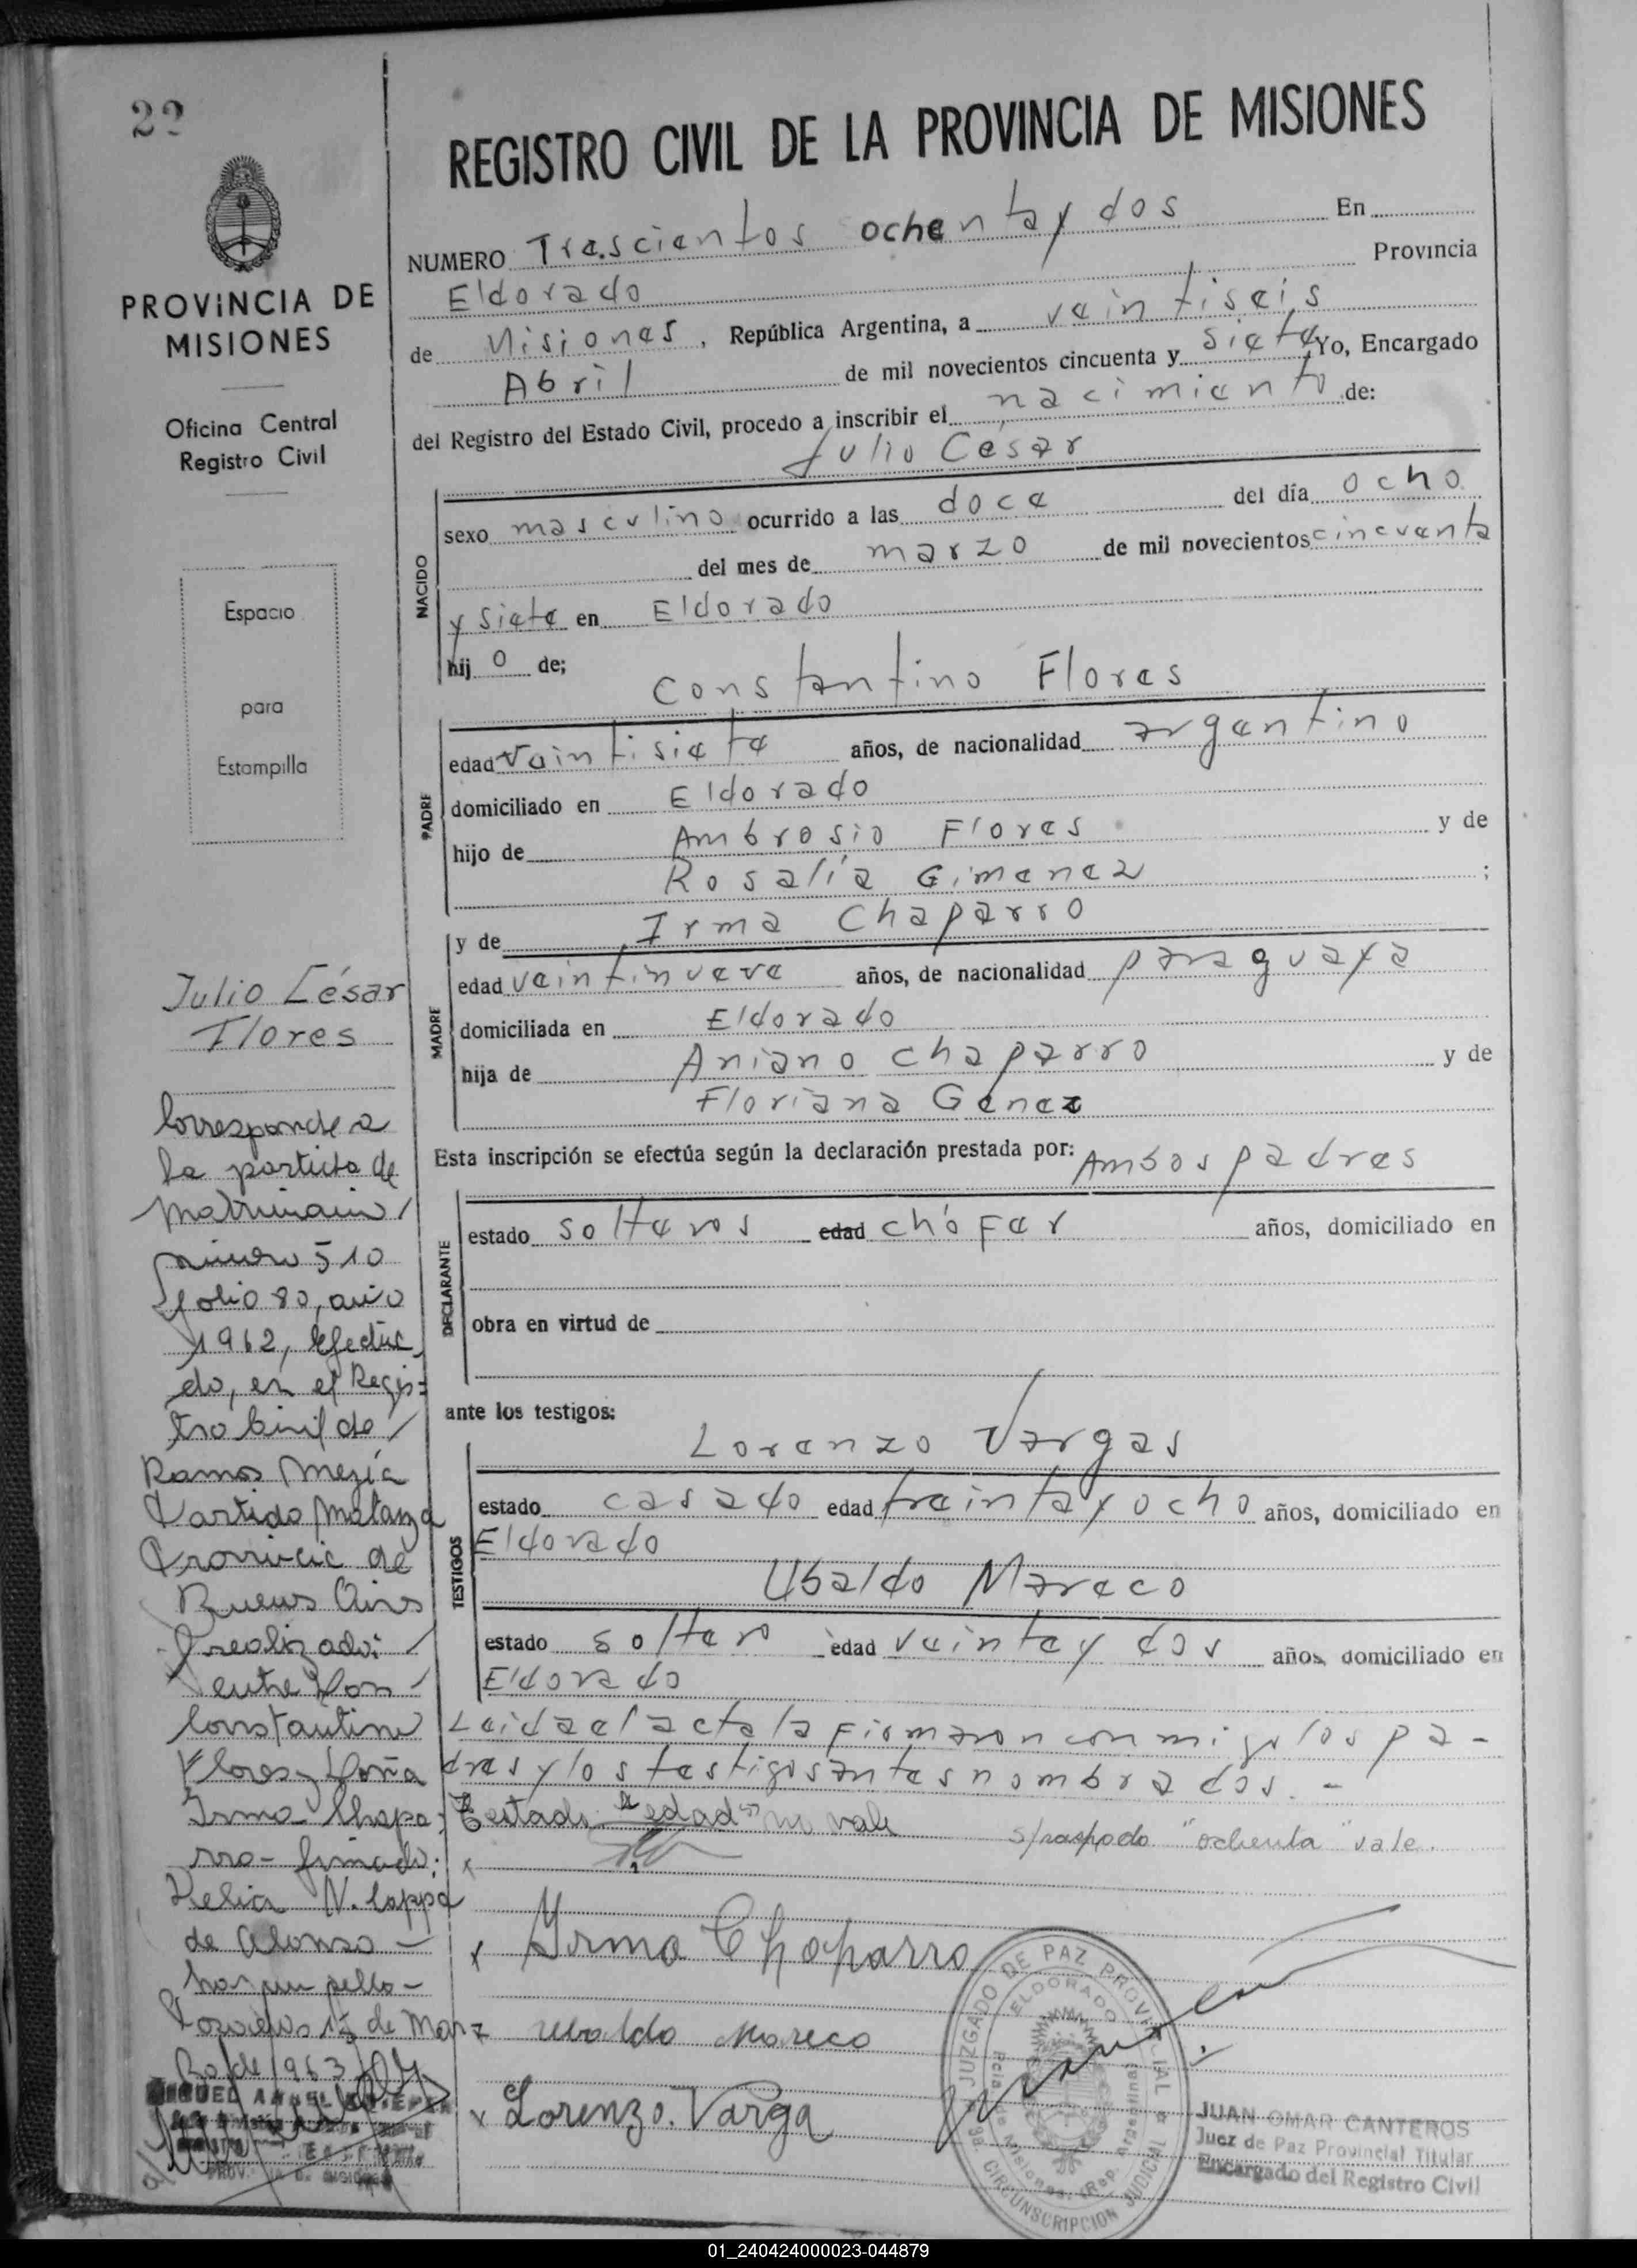 22
PROVINCIA DE
MISIONES
Oficina Central
Registro Civil
Espacio
para
Estampilla
Julio César
Flores
Corresponde a
la partida de
Matrimonio /
número 510
folio 80, año
1962, efectua
do, en el Regis=
tro Civil de /
Ramos Mezía
Partido Matanza
Provincia de
Buenos Aires
realizado: /
entre Don /
Constantino
Flores y Doña
Irma Chapa=
rro - firmado:
Delia N. Cappa
de Alonso -
hay un sello -
Posadas 15 de Mar
zo de 1963
MIGUEL ANGEL
PROV. DE MISIONES
REGISTRO CIVIL DE LA PROVINCIA DE MISIONES
NUMERO Trescientos ochenta y dos En
Eldorado Provincia
de Misiones, República Argentina, a veintiseis
Abril de mil novecientos cincuenta y siete Yo, Encargado
del Registro del Estado Civil, procedo a inscribir el nacimiento de:
Julio Cesar
NACIDO
sexo masculino ocurrido a las doce del día ocho
del mes de marzo de mil novecientos cincuenta
y siete en Eldorado
hij o de;
Constantino Flores
PADRE
edad veintisiete años, de nacionalidad argentino
domiciliado en Eldorado
hijo de Ambrosio Flores y de
Rosalía Gimenez ;
y de Irma Chaparro
MADRE
edad veintinueve años, de nacionalidad paraguaya
domiciliada en Eldorado
hija de Aniano Chaparro y de
Floriana Genez
Esta inscripción se efectúa según la declaración prestada por: Ambos padres
DECLARANTE
estado solteros edad chófer años, domiciliado en
obra en virtud de
ante los testigos:
Lorenzo Vargas
TESTIGOS
estado casado edad treinta y ocho años, domiciliado en
Eldorado
Ubaldo Mareco
estado soltero edad veinte y dos años, domiciliado en
Eldorado
Leida el acta la firmaron conmigo los pa-
dres y los testigos antes nombrados. -
Testado "edad" no vale s/raspado "ochenta" vale.
x
x Irma Chaparro
x Ubaldo Mareco
x Lorenzo. Varga
JUZGADO DE PAZ PROVINCIAL
ELDORADO
Pcia. de Misiones. (Rep. Argentina)
CIRCUNSCRIPCION JUDICIAL
JUAN OMAR CANTEROS
Juez de Paz Provincial Titular
Encargado del Registro Civil
01_240424000023-044879